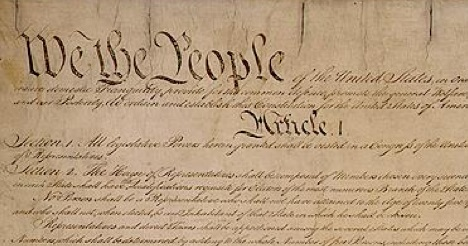 We the People of the United States, in Order
insure domestic Tranquility, provide for the common defence, promote the general Welfare,
and our Posterity, do ordain and establish this Constitution for the United States of America
Article. I.
Section. 1. All legislative Powers herein granted shall be vested in a Congress of the United
of Representatives.
Section. 2. The House of Representatives shall be composed of Members chosen every second
in each State shall have Qualifications requisite for Electors of the most numerous Branch of the State
No Person shall be a Representative who shall not have attained to the Age of twenty five
and who shall not, when elected, be an Inhabitant of that State in which he shall be chosen.
Representatives and direct Taxes shall be apportioned among the several States which may be
Numbers, which shall be determined by adding to the whole Number of free Persons, including those